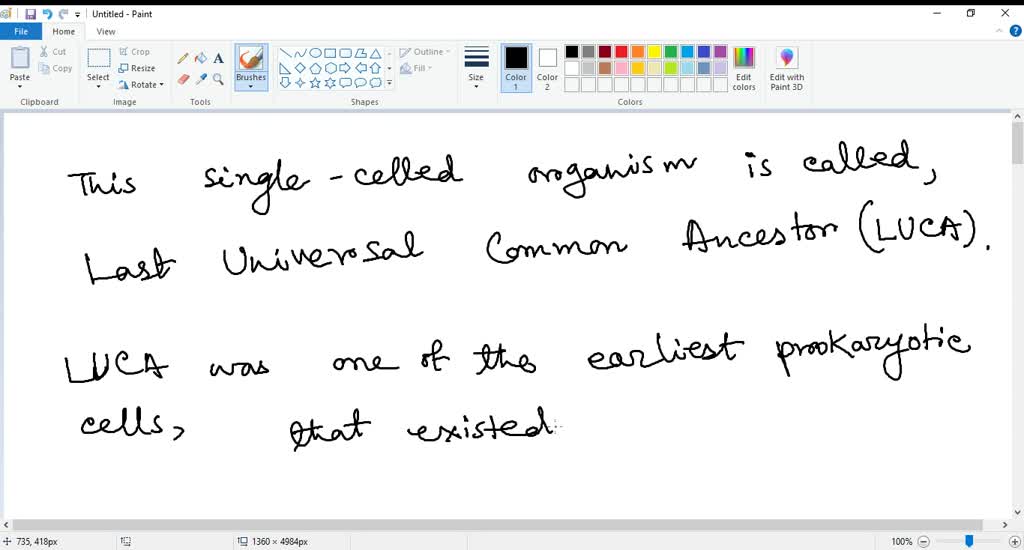 Untitled - Paint
File Home View
Paste Cut Copy Select Crop Resize Rotate Brushes Outline Fill Size Color 1 Color 2 Edit colors Edit with Paint 3D
Clipboard Image Tools Shapes Colors
This single-celled organism is called,
Last Universal Common Ancestor (LUCA).
LUCA was one of the earliest prokaryotic
cells, that existed
735, 418px 1360 × 4984px 100%